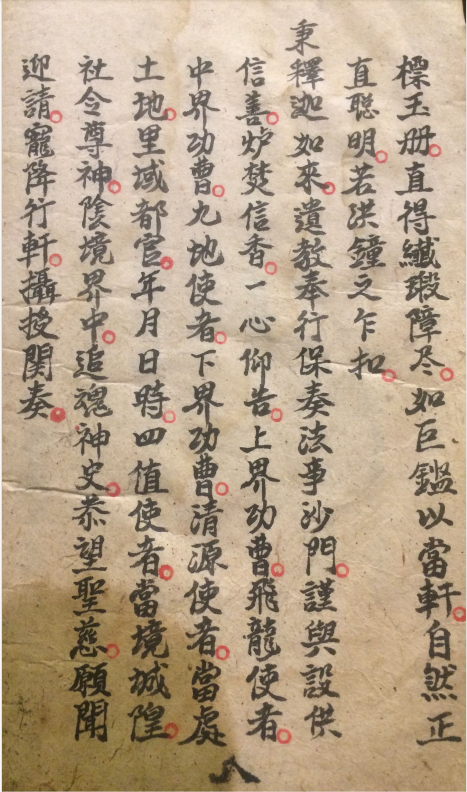 標玉册。直得纖瑕障尽。如巨鑑以當軒。自然正
直聰明。若洪鐘之乍扣。
秉釋迦如來。遺教奉行保奏法事沙門。謹與設供
信善。炉焚信香。一心仰告。上界功曹。飛龍使者。
中界功曹。九地使者。下界功曹。清源使者。當處
土地。里域都官。年月日時。四值使者。當境城隍。
社令尊神。陰境界中。追魂神史。恭望聖慈。願聞
迎請。寵降行軒。攝授関奏。
八